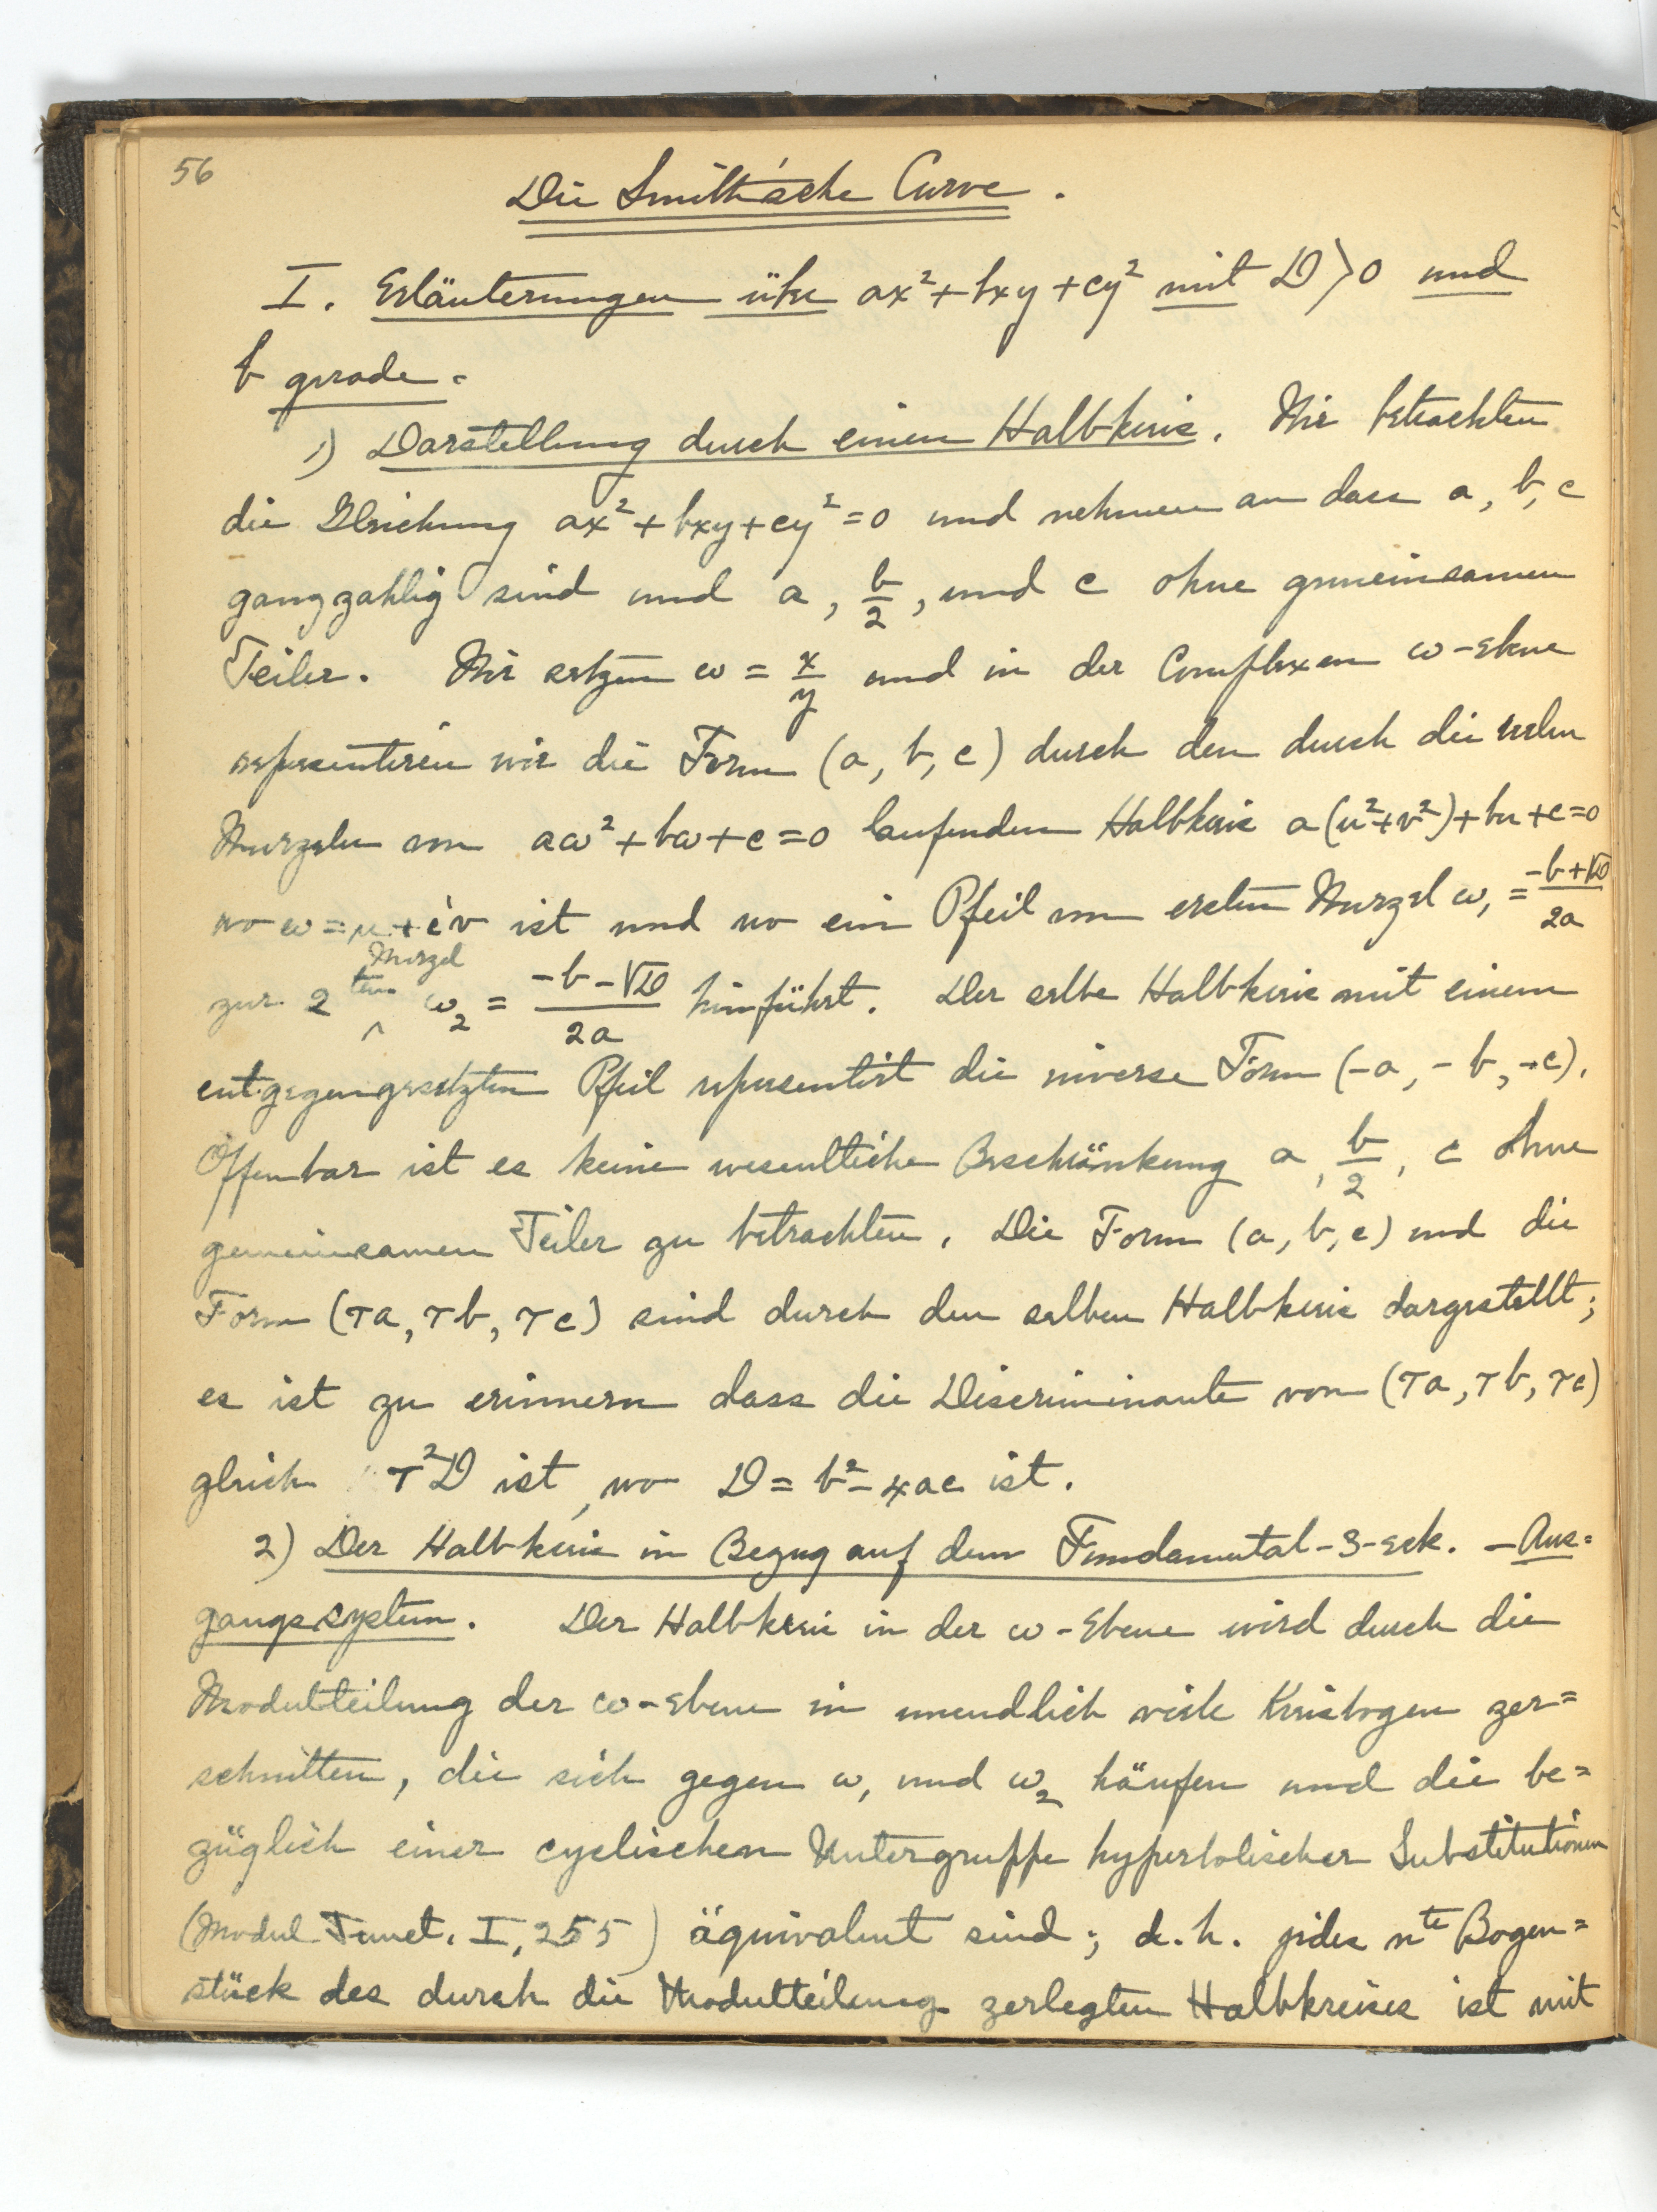 56
Die Smith'sche Curve.
I. Erläuterungen über ax²+bxy+cy² mit D>0 und
b gerade.
1) Darstellung durch einen Halbkreis. Wir betrachten
die Gleichung ax²+bxy+cy²=0 und nehmen an dass a, b, c
ganzzahlig sind und a, b/2, und c ohne gemeinsamen
Teiler. Wir setzen ω = x/y und in der Complexen ω-Ebene
representiren wir die Form (a, b, c) durch den durch die reelen
Wurzeln von aω²+bω+c=0 laufenden Halbkreis a(u²+v²)+bu+c=0
wo ω=u+iv ist und wo ein Pfeil von ersten Wurzel ω₁ = (-b+√D)/2a
zur 2ten Wurzel ω₂ = (-b-√D)/2a hinführt. Der selbe Halbkreis mit einem
entgegengesetzten Pfeil representirt die inverse Form (-a, -b, -c).
Offenbar ist es keine wesentliche Beschränkung a, b/2, c ohne
gemeinsamen Teiler zu betrachten. Die Form (a, b, c) und die
Form (τa, τb, τc) sind durch den selben Halbkreis dargestellt;
es ist zu erinnern dass die Discriminante von (τa, τb, τc)
gleich τ²D ist, wo D = b²-4ac ist.
2) Der Halbkreis in Bezug auf dem Fundamental-3-eck. - Aus=
gangssystem. Der Halbkreis in der ω-Ebene wird durch die
Modulteilung der ω-Ebene in unendlich viele Kreisbogen zer=
schnitten, die sich gegen ω₁ und ω₂ häufen und die be=
züglich einer cyclischen Untergruppe hyperbolischer Substitutionen
(Modul Funct. I, 255) äquivalent sind; d.h. jedes nte Bogen=
stück des durch die Modulteilung zerlegten Halbkreises ist mit